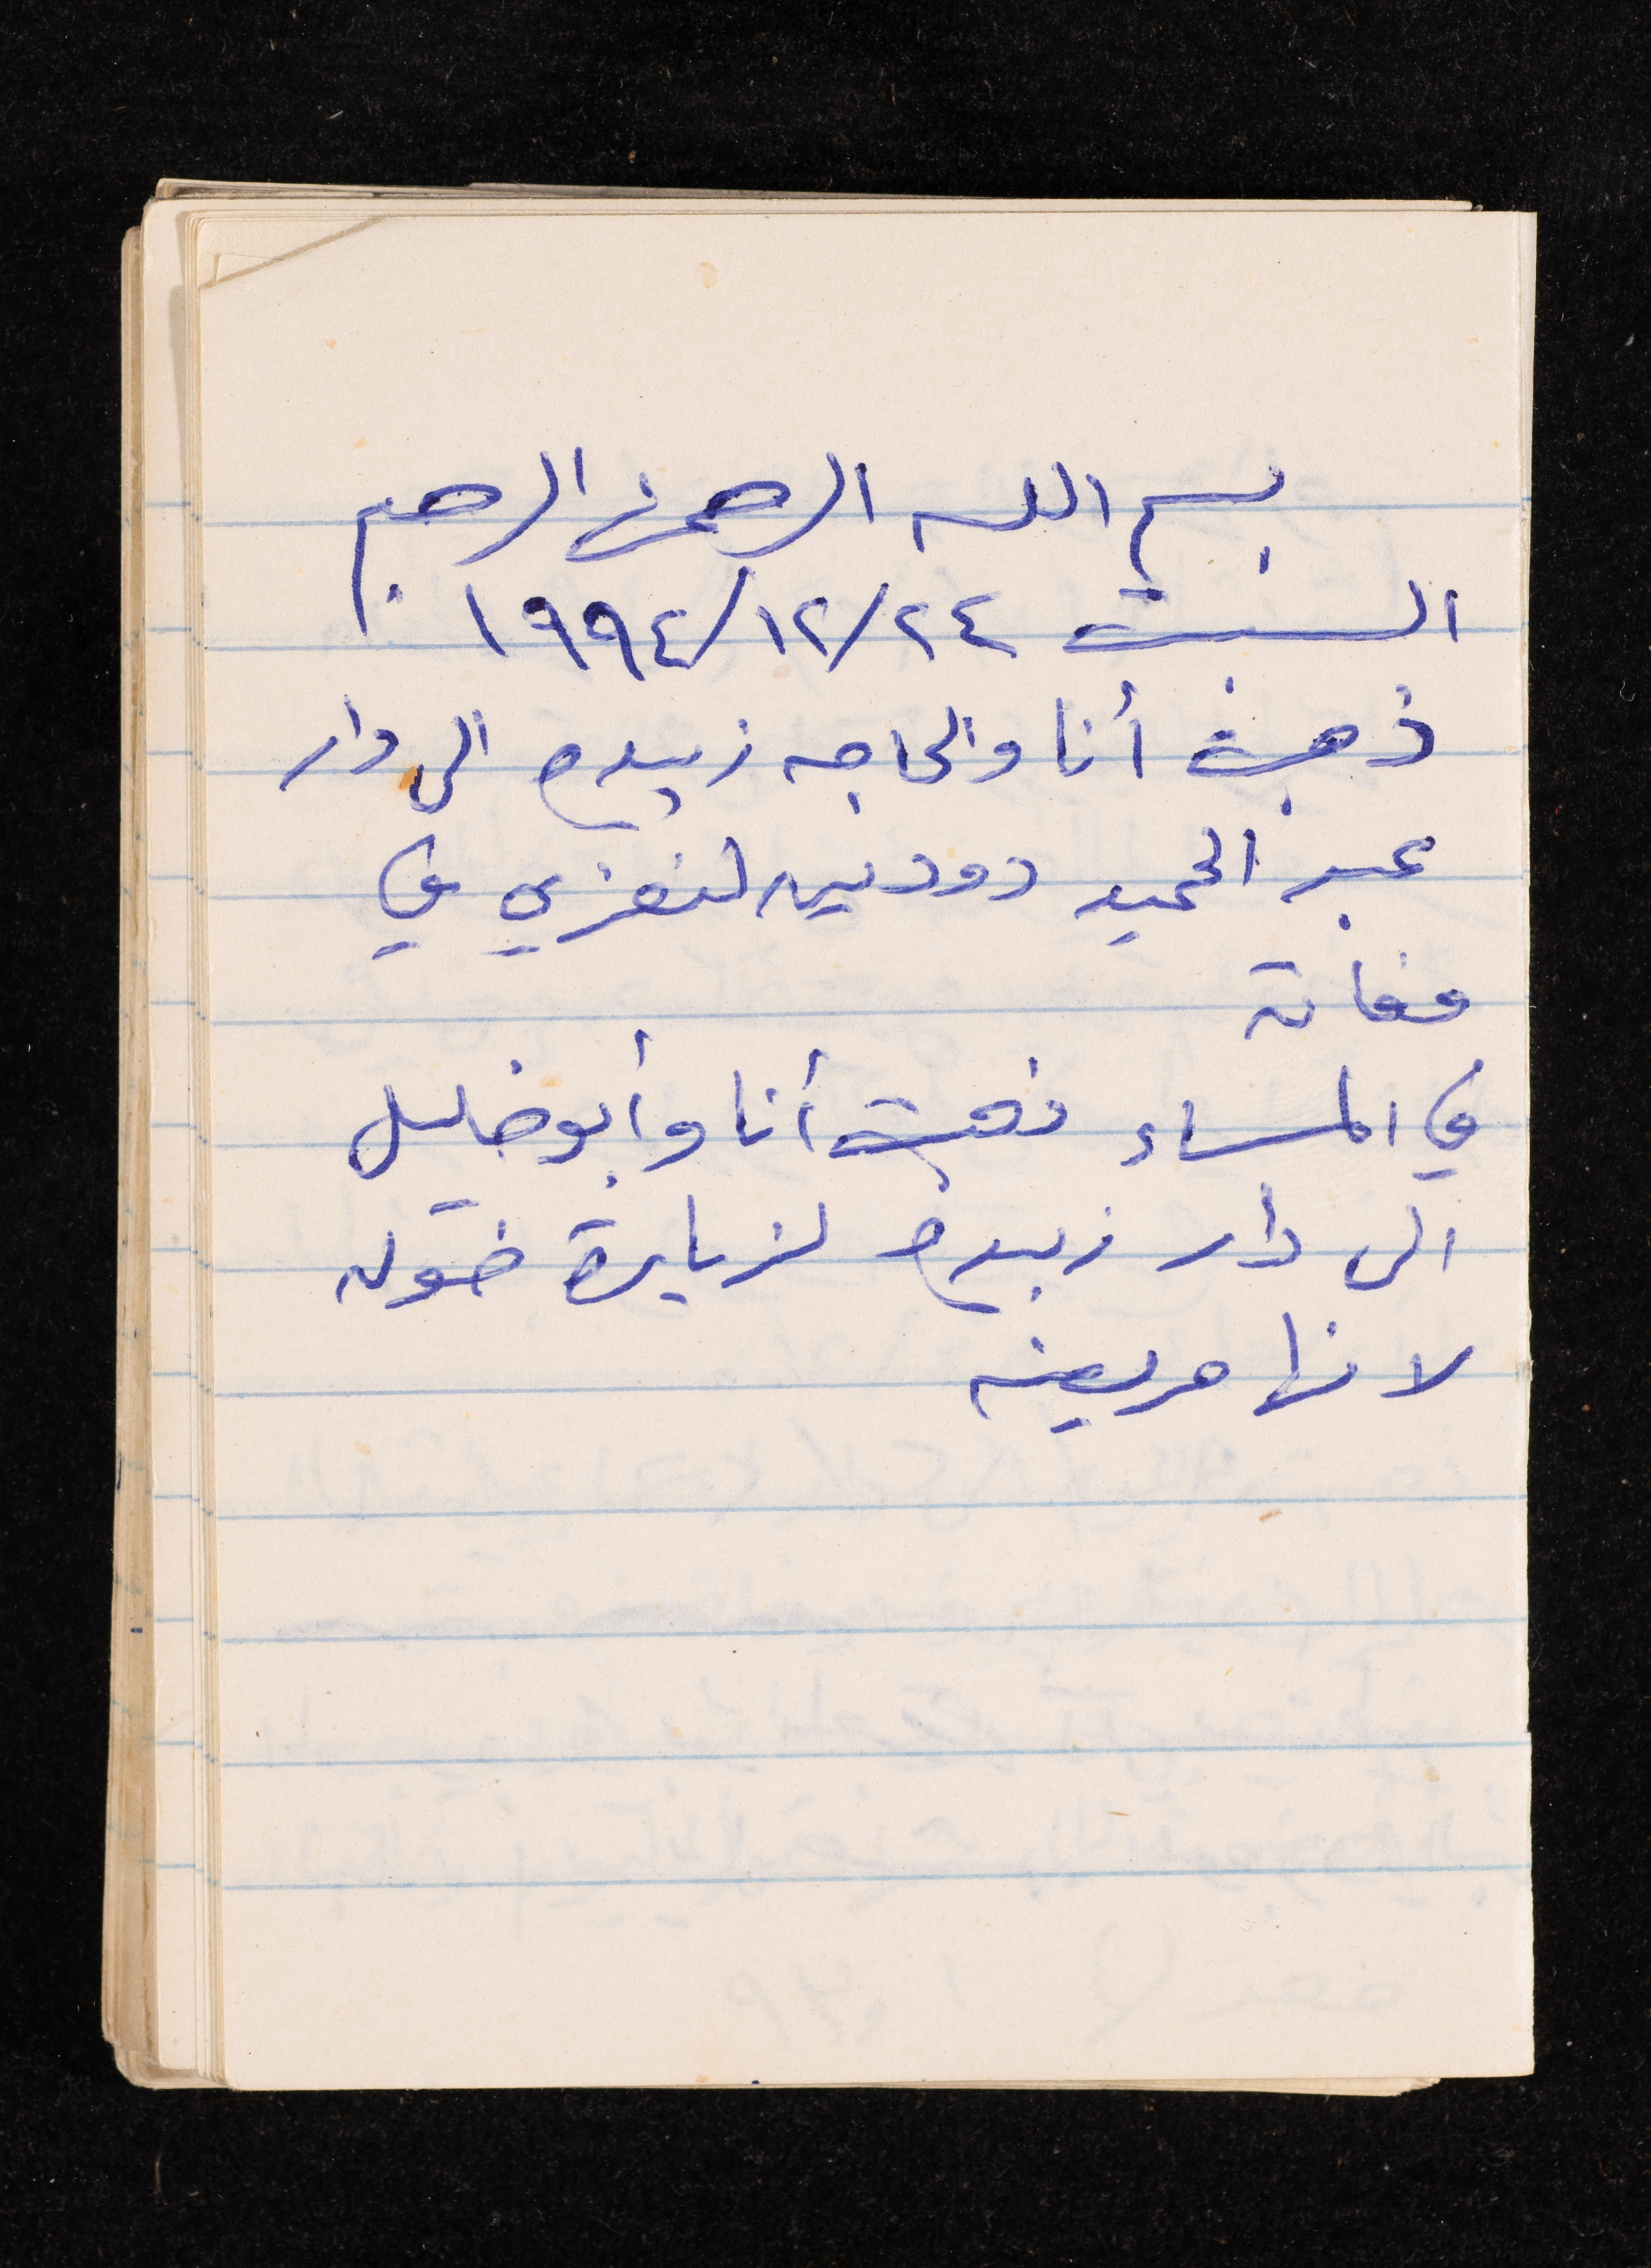 بسم الله الرحمن الرحيم
السبت ٢٤/١٢/١٩٩٤
ذهبت أنا والحاجه زبيده الى دار
عبد الحميد دودين لنعزي في
وفاته
في المساء ذهبت أنا وأبو خليل
الى دار زبيده لزيارة خوله
لانها مريضه